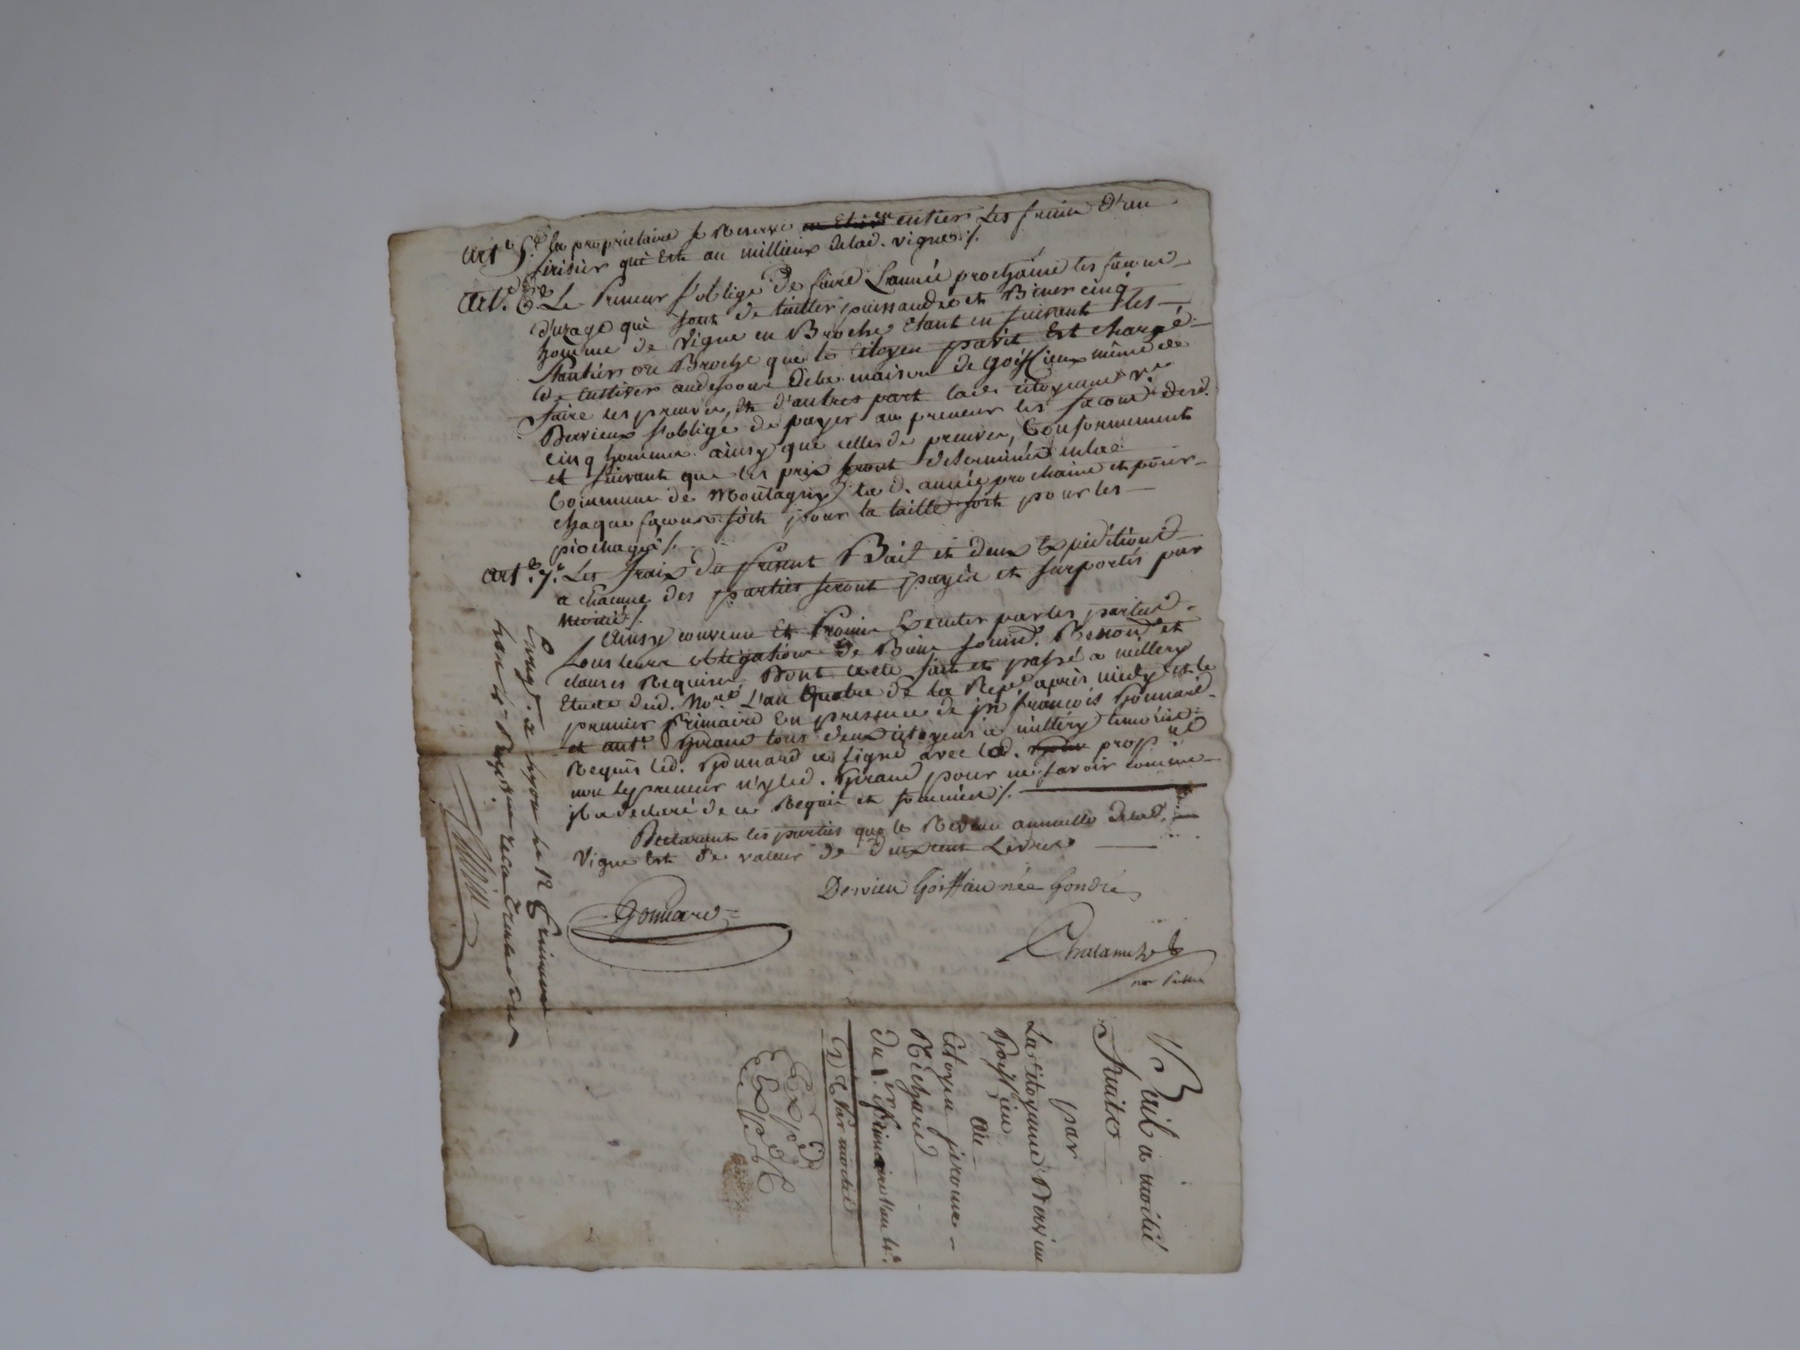 Art. 5.e La propriétaire se Reserve en entier les fruits d'un
cirisier qui Est au millieux delad. vigne ./.
Art. 6.e Le Preneur s'oblige de faire l'année prochaine les façons
d'uzage qui sont de tailler, puissandre et Biner cinq
homme de vigne en Broche étant en suivant les
sentiers ou Broche que le citoyen est chargé
de cultiver audessous dela maison de Goiffieux même de
faire les preuves, et d'autres part lade citoyenne ve
Dervieux s'oblige de payer au preneur les façons desd.
cinq hommes ainsy que celles de preuves, Conformement
et suivant que les prix seront determinés en la
Commune de Montagny lad. année prochaine et pour
chaque façons soit pour la taille soit pour les
piochages ./.
Art. 7.e Les fraix du present Bail et deux Expeditions
a chacune des parties seront payés et surportés par
moitié ./.
Ainsy convenu et Promis Executer par les parties
sous leurs obligations de Biens soumis. Renon. et
clauses Requises. Dont acte fait et passé a millery
Etude dud. No.re L'an Quatre de la Rep.e après midy et le
premier frimaire En presence de jn françois Gonnard
et ant.e Giraud tous deux citoyens a millery temoins
Requis led. Gonnard a signé avec lad. prop.re
non le preneur n'y led. Giraud pour ne savoir comme
il a declaré de ce Requis et sommés ./.
Declarant les parties que le Revenu annuelle delad.
vigne Est de valeur de deux cent Livres
Dervieu Goiffieu née Gondré
Gonnard
Enreg.t a Lyon le 12 frimaire
Bail a moitié
fruits
par
La citoyenne Dervieu
Goiffieu
au
Citoyen jerome
Richard
Du 1.er frimaire l'an 4.e
Exp.d
Exp.d